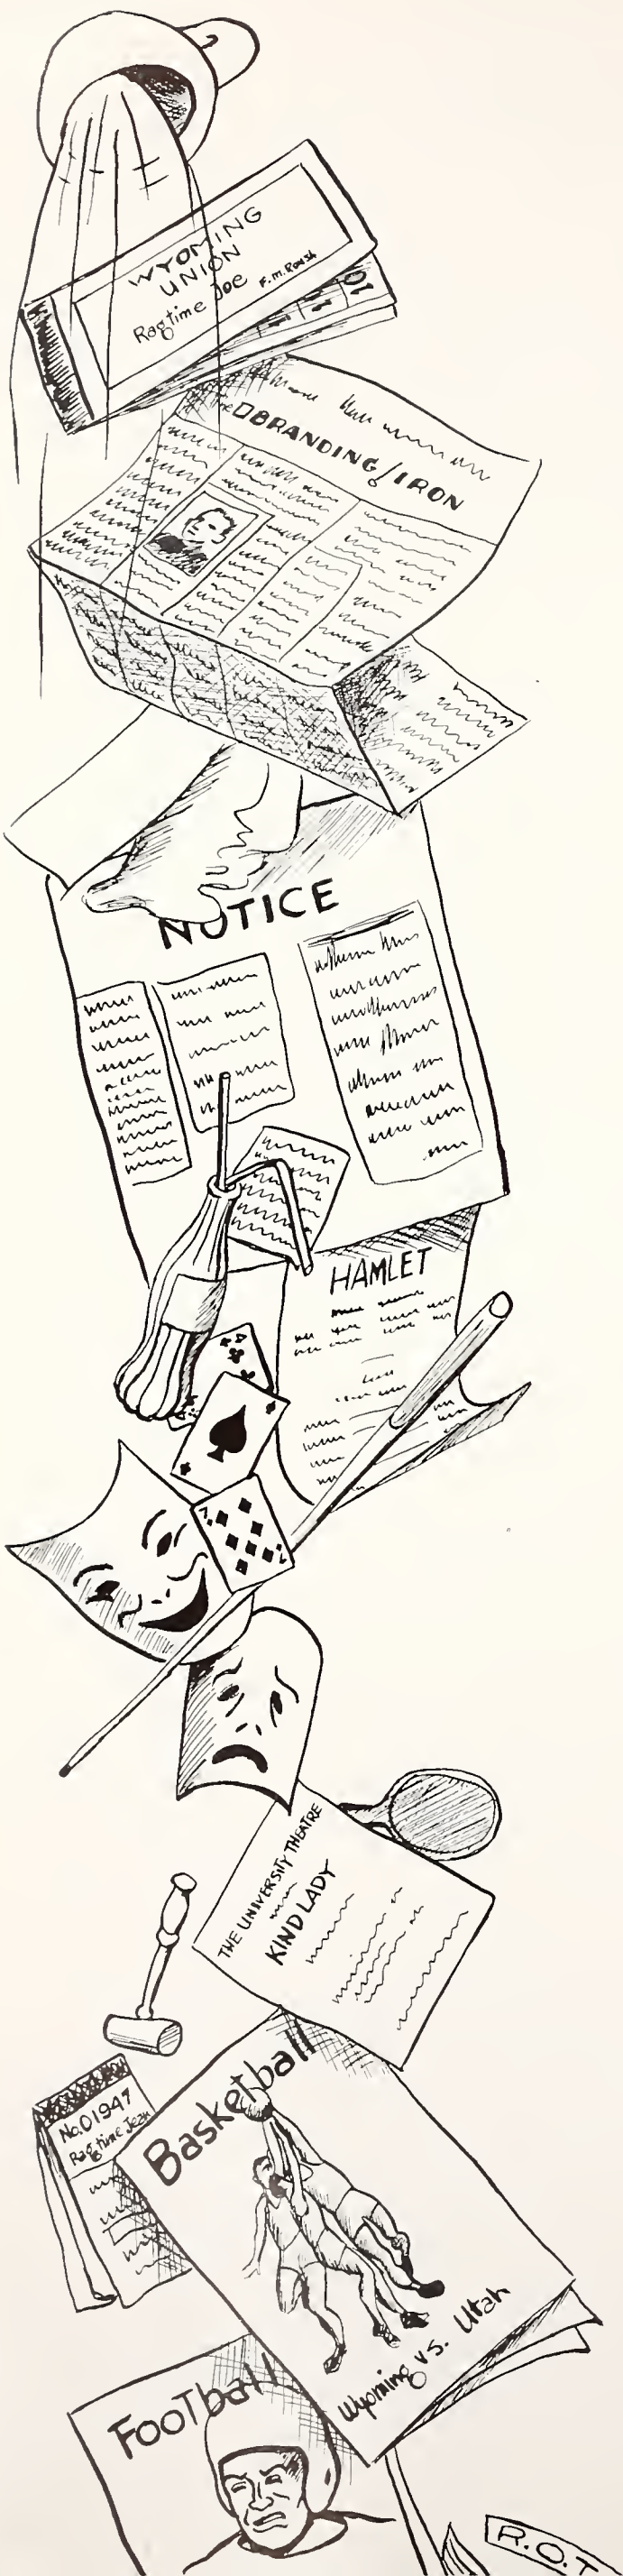 WYOMING
UNION
Ragtime Joe F.M. Roush
10
BRANDING IRON
NOTICE
HAMLET
7
7
THE UNIVERSITY THEATRE
KIND LADY
No. 01947
Ragtime Jean
Basketball
Wyoming vs. Utah
FooTball
R.O.T